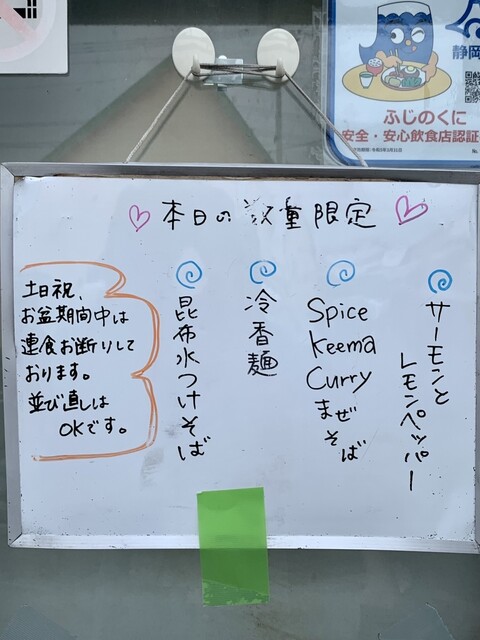 静岡
ふじのくに
安全・安心飲食店認証
本日の数量限定
サーモンと
レモンペッパー
Spice
Keema
Curry
まぜそば
冷香麺
昆布水つけそば
土日祝、
お盆期間中は
連食お断りして
おります。
並び直しは
OKです。